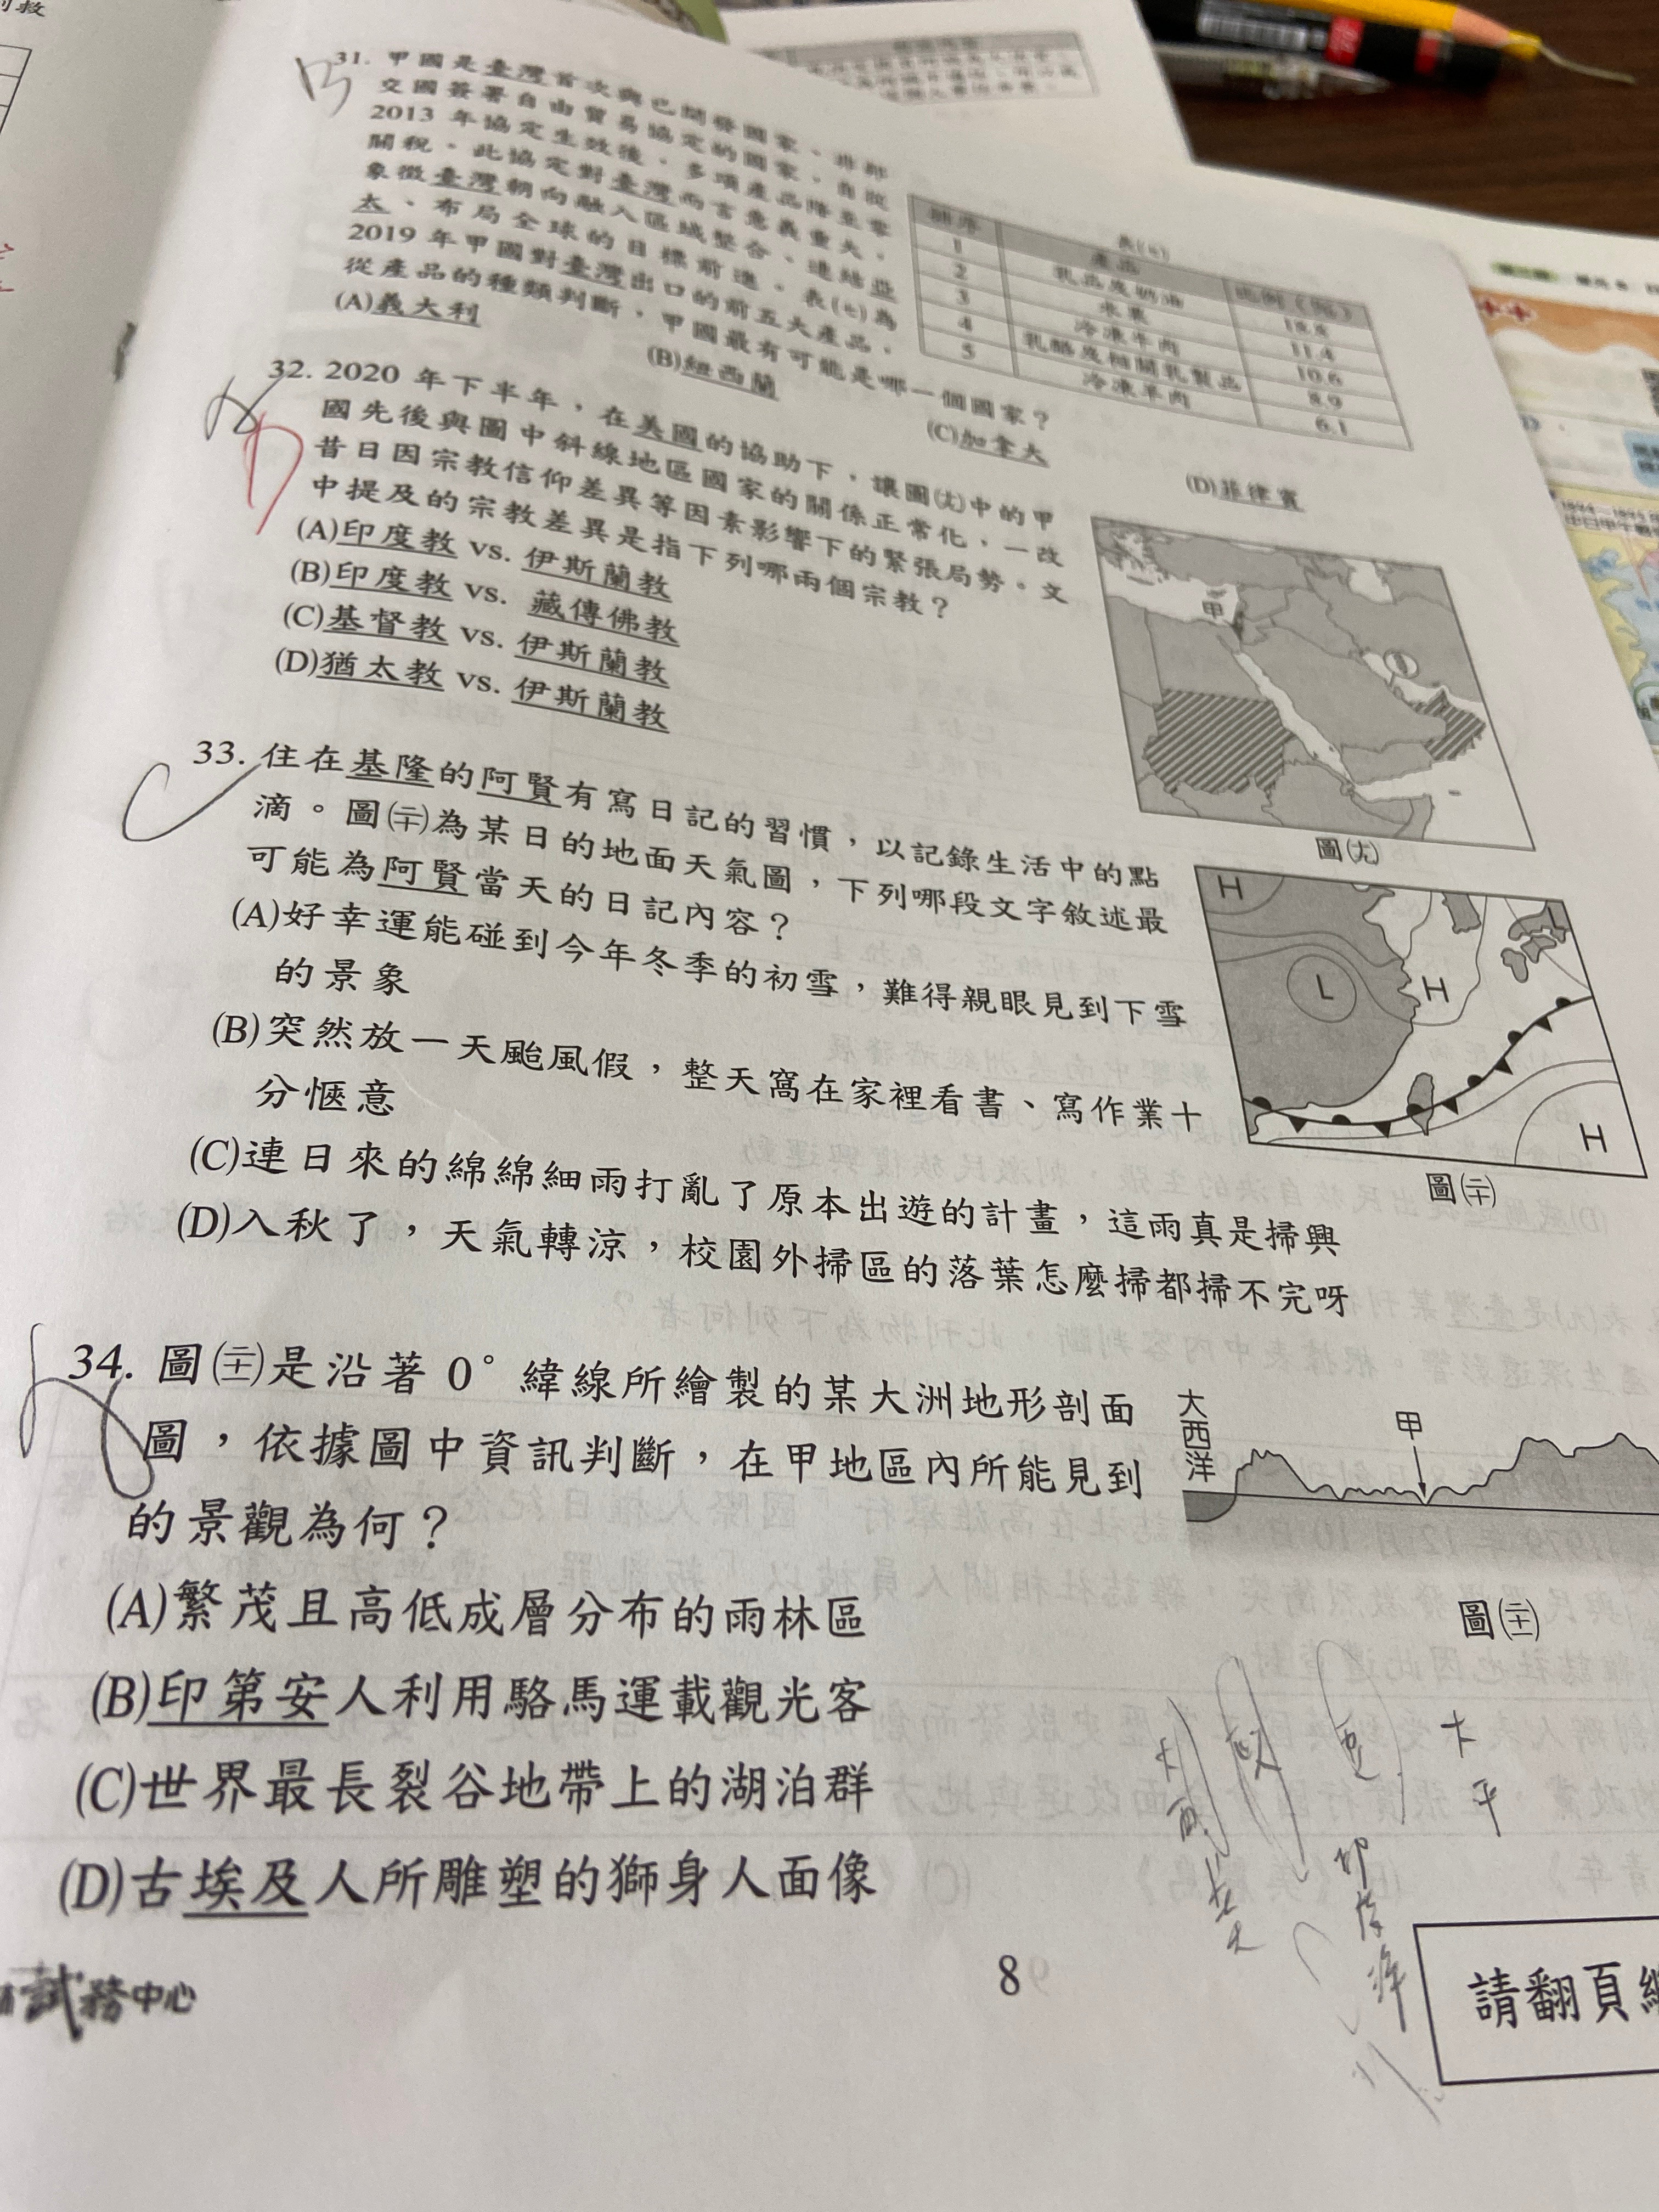 31. 甲國是臺灣首次與已開發國家、非邦
交國簽署自由貿易協定的國家,自從
2013 年協定生效後,多項產品降至零
關稅。此協定對臺灣而言意義重大,
象徵臺灣朝向融入區域整合、連結亞
太、布局全球的目標前進。表(七)為
2019 年甲國對臺灣出口的前五大產品,
從產品的種類判斷,甲國最有可能是哪一個國家?
(A)義大利 (B)紐西蘭 (C)加拿大 (D)菲律賓
表(七)
順序 產品 比例(%)
1 乳品及奶油 18.8
2 水果 11.4
3 冷凍牛肉 10.6
4 乳酪及相關乳製品 8.9
5 冷凍羊肉 6.1
B
32. 2020 年下半年,在美國的協助下,讓圖(九)中的甲
國先後與圖中斜線地區國家的關係正常化,一改
昔日因宗教信仰差異等因素影響下的緊張局勢。文
中提及的宗教差異是指下列哪兩個宗教?
(A)印度教 vs. 伊斯蘭教
(B)印度教 vs. 藏傳佛教
(C)基督教 vs. 伊斯蘭教
(D)猶太教 vs. 伊斯蘭教
D
甲
33. 住在基隆的阿賢有寫日記的習慣,以記錄生活中的點
滴。圖(二十)為某日的地面天氣圖,下列哪段文字敘述最
可能為阿賢當天的日記內容?
(A)好幸運能碰到今年冬季的初雪,難得親眼見到下雪
的景象
(B)突然放一天颱風假,整天窩在家裡看書、寫作業十
分愜意
(C)連日來的綿綿細雨打亂了原本出遊的計畫,這雨真是掃興
(D)入秋了,天氣轉涼,校園外掃區的落葉怎麼掃都掃不完呀
C
H
L
H
H
圖(二十)
34. 圖(二十一)是沿著 0° 緯線所繪製的某大洲地形剖面
圖,依據圖中資訊判斷,在甲地區內所能見到
的景觀為何?
(A)繁茂且高低成層分布的雨林區
(B)印第安人利用駱馬運載觀光客
(C)世界最長裂谷地帶上的湖泊群
(D)古埃及人所雕塑的獅身人面像
A
大西洋
甲
圖(二十一)
太平
印度洋
試務中心
8
請翻頁